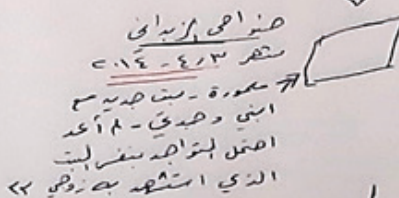 ضواحي الزبداني
شهر ٣ر٤ - ٢٠١٤
معمورة - بيت جديد مع
ابني وحيدي - لم أعد
احتمل التواجد بنفس البيت
الذي استشهد به زوجي ٢٣